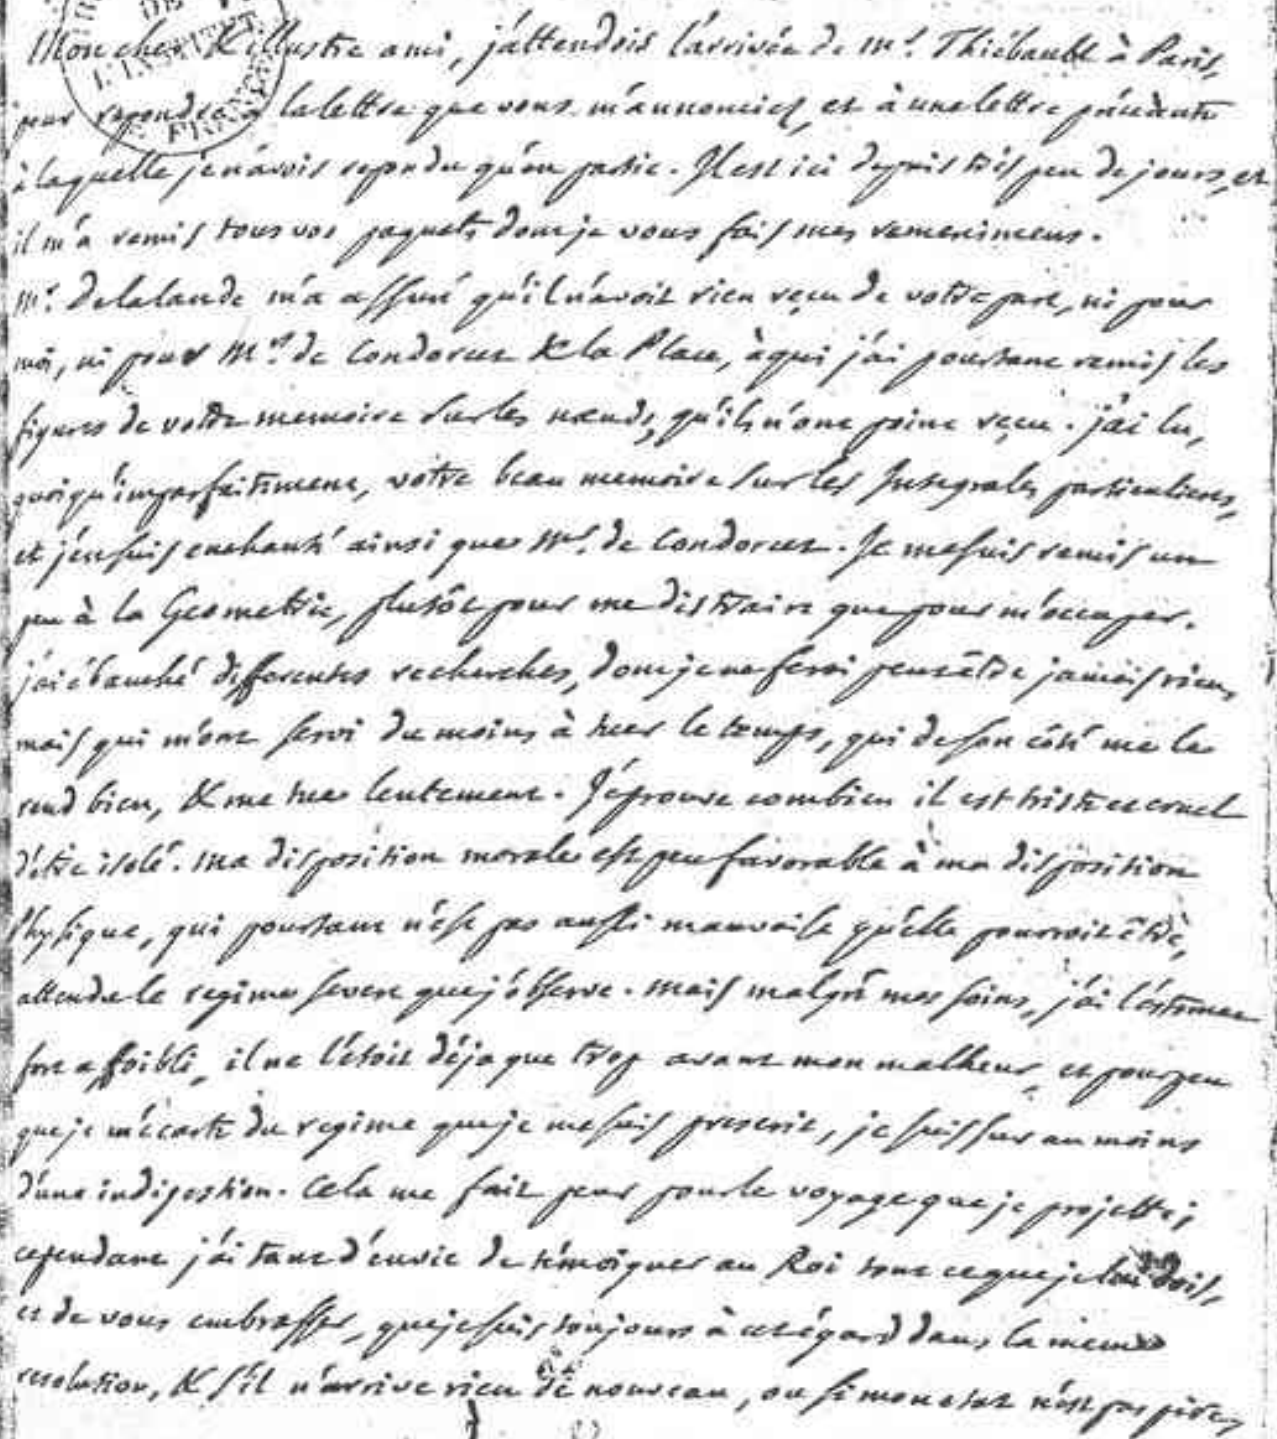 Mon cher & illustre ami, j'attendois l'arrivée de Mr. Thiébault à Paris,
pour repondre à la lettre que vous m'annonciez, et à une lettre précédente
à laquelle je n'avois repondu qu'en partie. Il est ici depuis très peu de jours, et
il m'a remis tous vos paquets dont je vous fais mes remercimens.
Mr. de la lande m'a assuré qu'il n'avoit rien reçu de votre part, ni pour
moi, ni pour Mrs. de Condorcet & la Place, à qui j'ai pourtant remis les
figures de votre memoire sur les nœuds, qu'ils n'ont point reçu. j'ai lu,
quoiqu'imparfaitement, votre beau memoire sur les Integrales particulieres,
et j'en suis enchanté ainsi que Mr. de Condorcet. Je me suis remis un
peu à la Geometrie, plutôt pour me distraire que pour m'occuper.
j'ai ébauché differentes recherches, dont je ne ferai peut être jamais rien,
mais qui m'ont servi du moins à tuer le temps, qui de son côté me le
rend bien, & me tue lentement. J'éprouve combien il est triste et cruel
d'être isolé. ma disposition morale est peu favorable à ma disposition
Physique, qui pourtant n'est pas aussi mauvaise qu'elle pourroit être,
attendu le regime severe que j'observe. mais malgré mes soins, j'ai l'estomac
fort affoibli, il ne l'étoit déja que trop avant mon malheur, et pour peu
que je m'écarte du regime que je me suis prescrit, je suis sur au moins
d'une indigestion. Cela me fait peur pour le voyage que je projette;
cependant j'ai tant d'envie de témoigner au Roi tout ce que je lui dois,
et de vous embrasser, que je suis toujours à cet égard dans la meme
resolution, & s'il n'arrive rien de nouveau, ou si mon etat n'est pas pire,